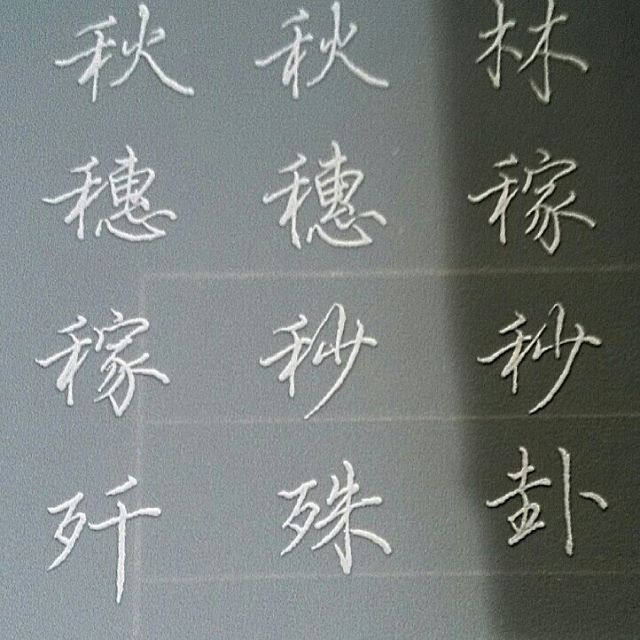 秋 秋 林
穗 穗 稼
稼 秒 秒
歼 殊 卦